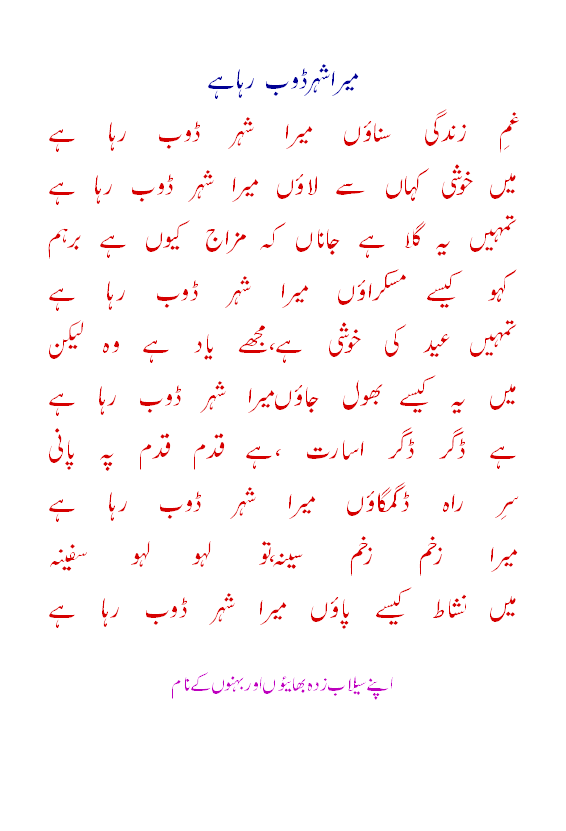 میرا شہر ڈوب رہا ہے
غمِ زندگی سناؤں میرا شہر ڈوب رہا ہے
میں خوشی کہاں سے لاؤں میرا شہر ڈوب رہا ہے
تمہیں یہ گلا ہے جاناں کہ مزاج کیوں ہے برہم
کہو کیسے مسکراؤں میرا شہر ڈوب رہا ہے
تمہیں عید کی خوشی ہے،مجھے یاد ہے وہ لیکن
میں یہ کیسے بھول جاؤں میرا شہر ڈوب رہا ہے
ہے ڈگر ڈگر اسارت ،ہے قدم قدم پہ پانی
سرِ راہ ڈگمگاؤں میرا شہر ڈوب رہا ہے
میرا زخم زخم سینہ،تو لہو لہو سفینہ
میں نشاط کیسے پاؤں میرا شہر ڈوب رہا ہے
اپنے سیلاب زدہ بھائیوں اور بہنوں کے نام